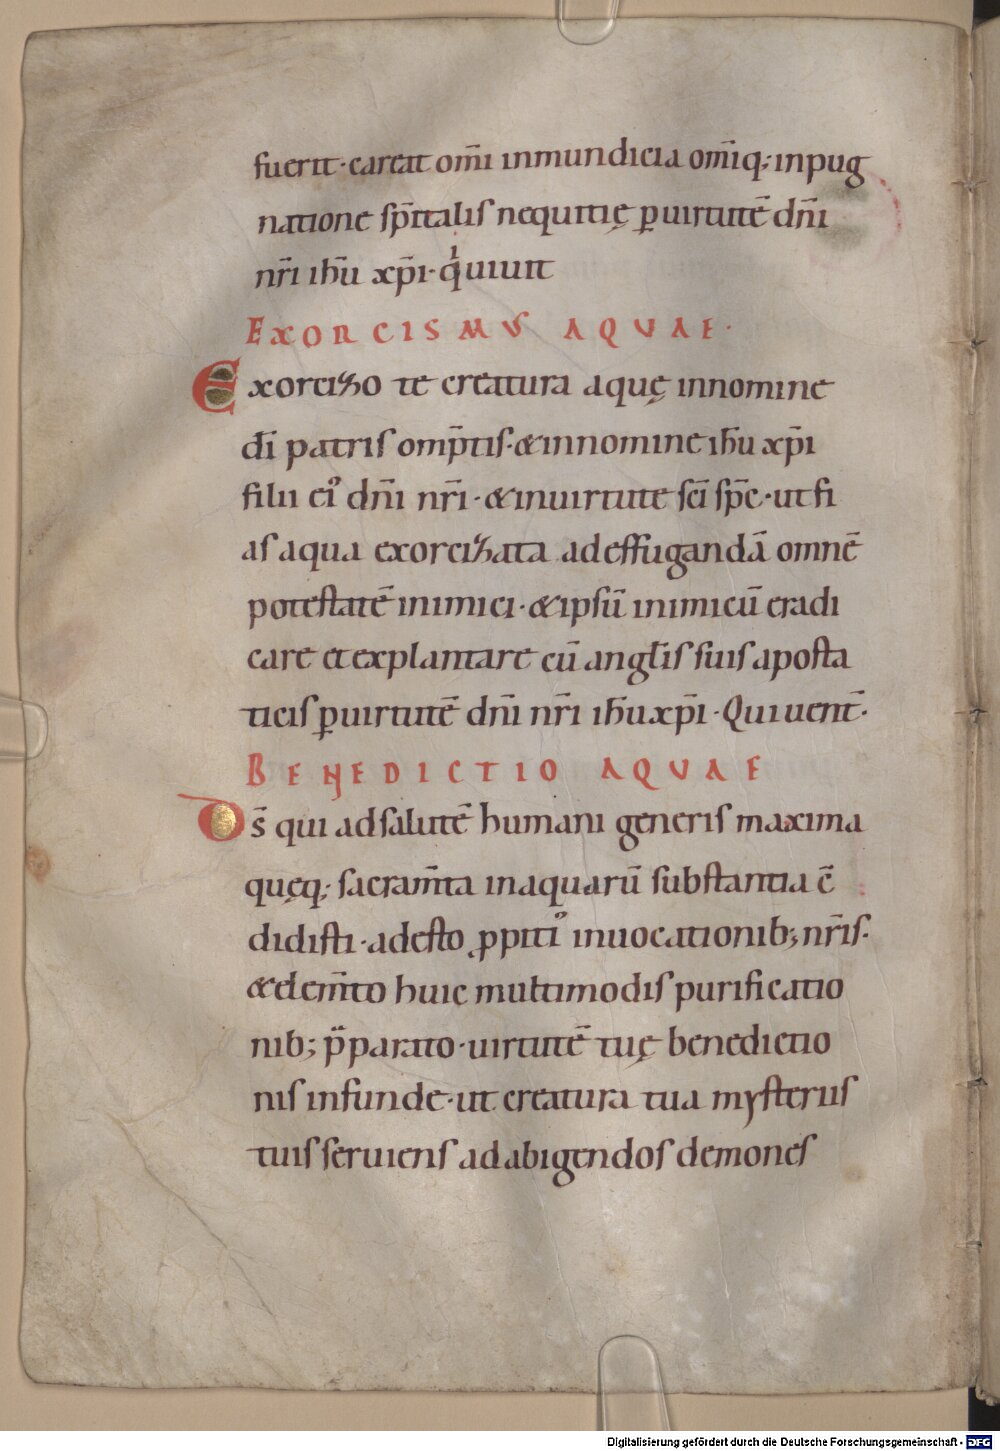 fuerit· careat om̄i inmundicia om̄iq; inpug
natione sp̄italis nequitię ꝑ uirtutē dn̄i
nr̄i ih̄u xp̄i· qͥ uiuit
EXORCISMVS AQVAE·
Exorcizo te creatura aquę innomine
dī patris omp̄tis· & innomine ih̄u xp̄i
filii ei᾽ dn̄i nr̄i· & inuirtute sc̄i sp̄c· ut fi
as aqua exorcizata adeffugandā omnē
potestatē inimici· & ipsū inimicū eradi
care et explantare cū angl̄is suis aposta
ticis ꝑ uirtutē dn̄i nr̄i ih̄u xp̄i· Qui uent̄·
BENEDICTIO AQVAE
Ds̄ qui adsalutē humani generis maxima
quęq; sacram̄ta inaquarū substantia c̄
didisti· adesto ꝓpiti᾽ inuocationib; nr̄is·
& elem̄to huic multimodis purificatio
nib; p̄parato· uirtutē tuę benedictio
nis infunde· ut creatura tua mysteriis
tuis seruiens ad abigendos demones
Digitalisierung gefördert durch die Deutsche Forschungsgemeinschaft - DFG